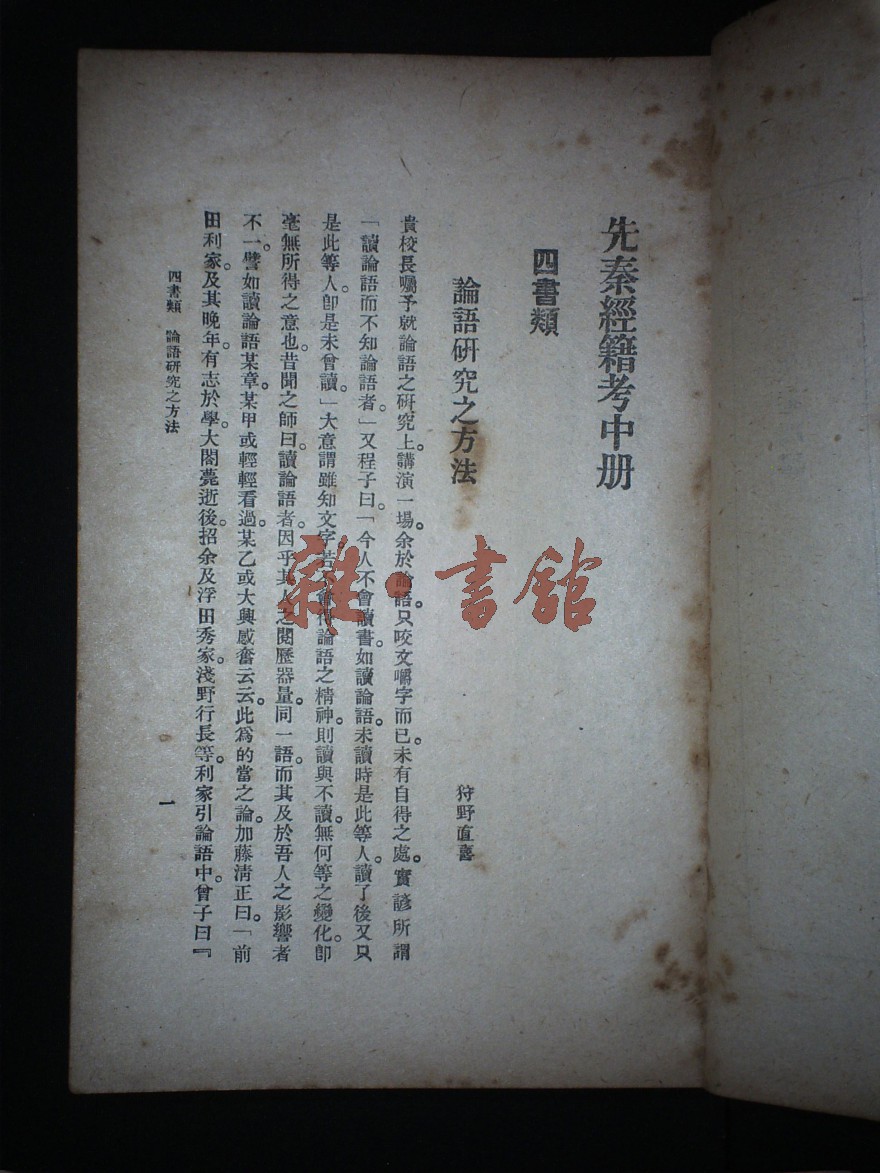 先秦經籍考中册
四書類
論語研究之方法
狩野直喜
貴校長囑予就論語之研究上。講演一場。余於論語。只咬文嚼字而已。未有自得之處。實諺所謂
「讀論語而不知論語者。」又程子曰。「今人不會讀書。如讀論語。未讀時是此等人。讀了後又只
是此等人。卽是未曾讀。」大意謂雖知文字。若不會得論語之精神。則讀與不讀。無何等之變化。卽
毫無所得之意也。昔聞之師曰。讀論語者。因乎其人之閱歷器量。同一語。而其及於吾人之影響者
不一。譬如讀論語某章。某甲或輕輕看過。某乙或大興感奮云云。此爲的當之論。加藤清正曰。「前
田利家。及其晚年。有志於學。大閤薨逝後。招余及浮田秀家。淺野行長等。利家引論語中。曾子曰『
四書類　論語研究之方法
一
雜·書館